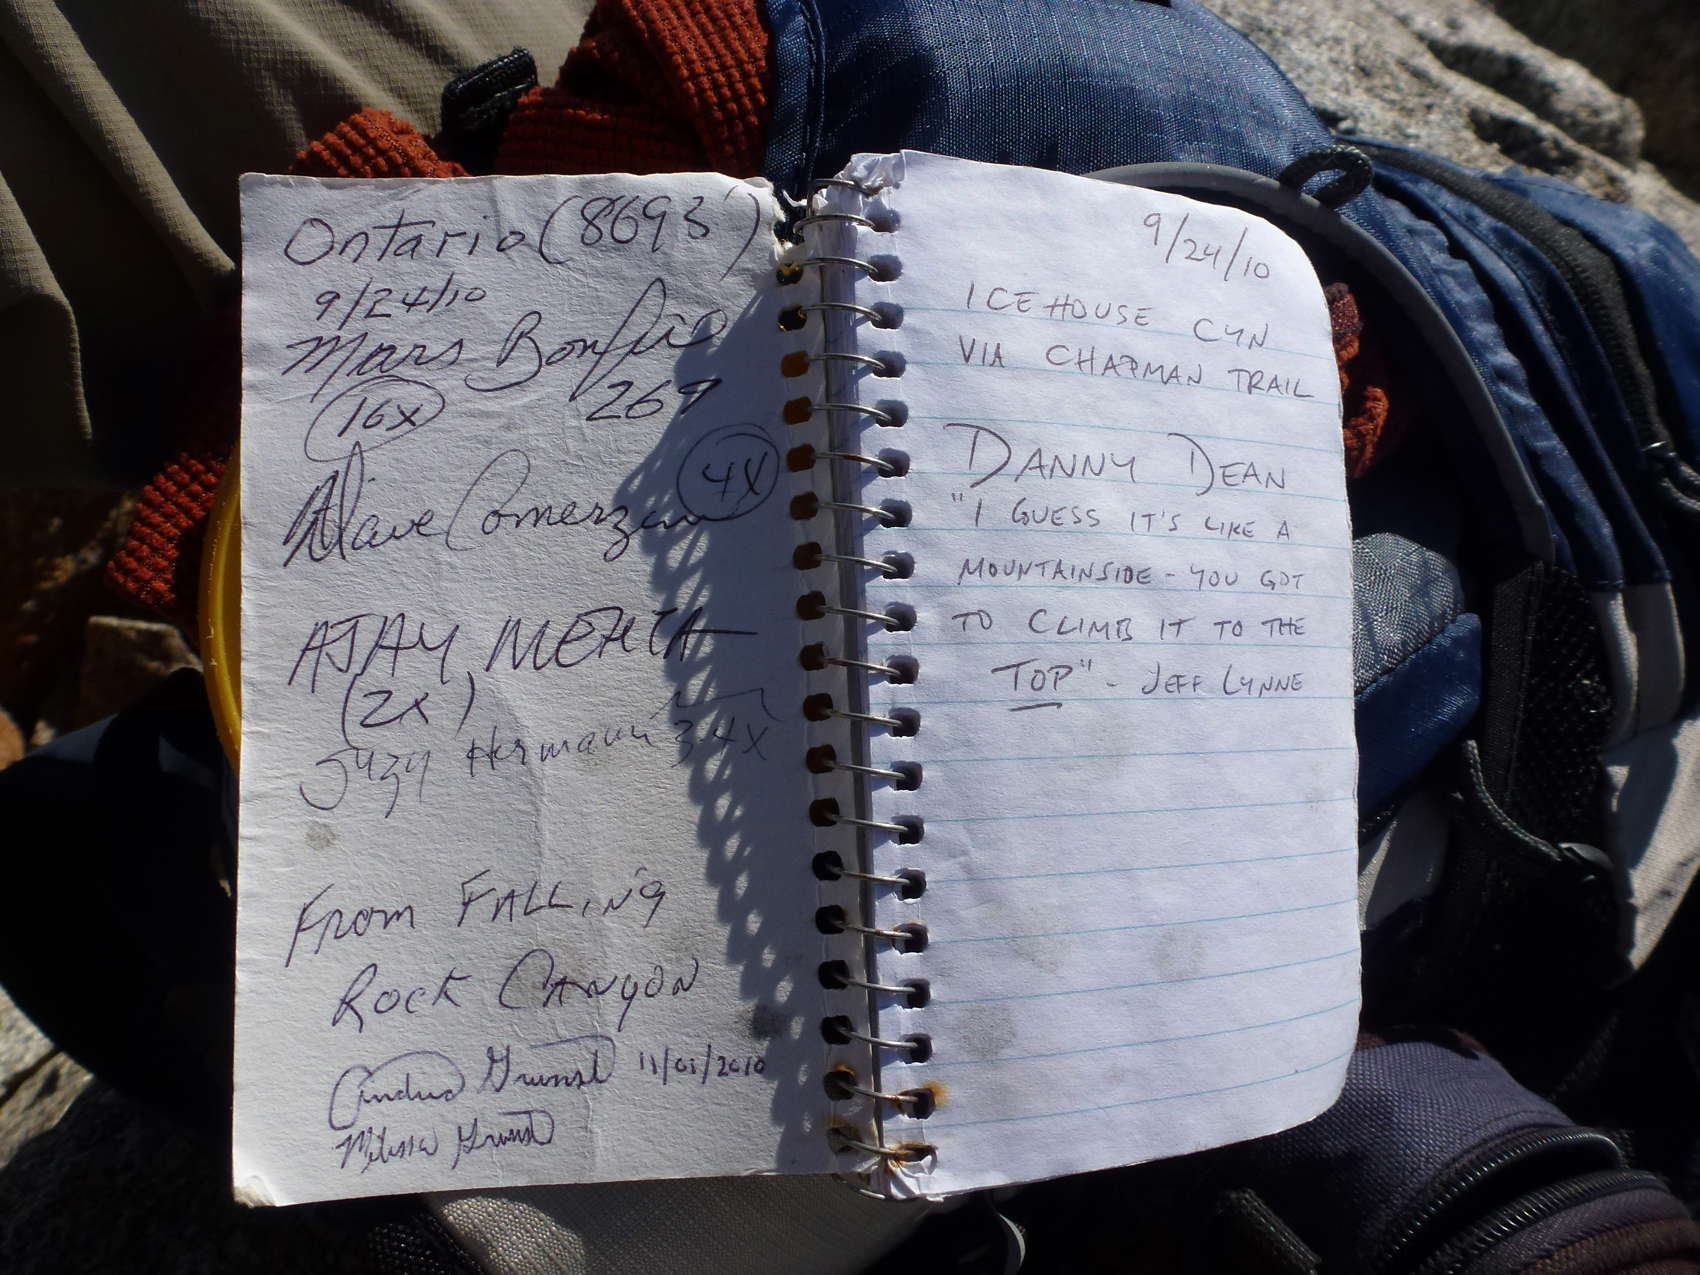 Ontario (8693')
9/24/10
Mars Bonfire
16x 267
Dave Comerzan 4X
AJAY MEHTA
(2x)
Suzy Hermann 34X
From FALLING
Rock CANYON
Grunst 11/01/2010
Melissa Grunst
9/24/10
ICEHOUSE CYN
VIA CHAPMAN TRAIL
DANNY DEAN
"I GUESS IT'S LIKE A
MOUNTAINSIDE - YOU GOT
TO CLIMB IT TO THE
TOP" - JEFF LYNNE